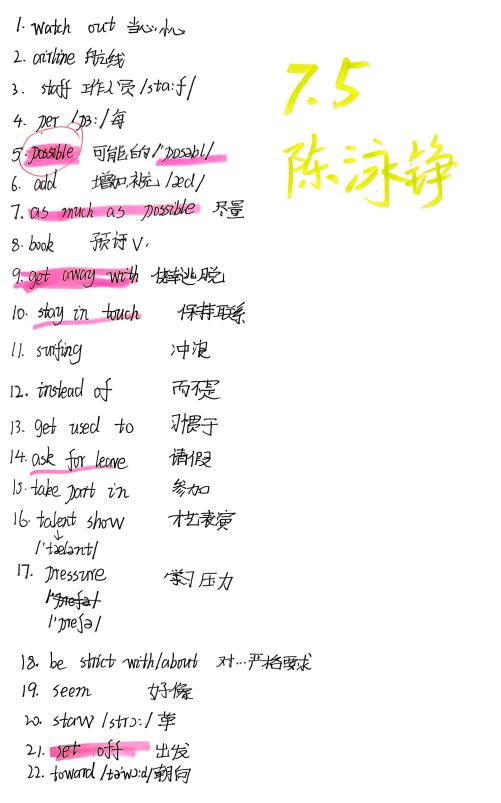 1. watch out 当心,小心
2. airline 航线
3. staff 工作人员 /sta:f/
4. per /pɜ:/ 每
5. possible 可能的 /'pɒsəbl/
6. add 增加,补充 /æd/
7. as much as possible 尽量
8. book 预订 V.
9. get away with 侥幸逃脱
10. stay in touch 保持联系
11. surfing 冲浪
12. instead of 而不是
13. get used to 习惯于
14. ask for leave 请假
15. take part in 参加
16. talent show 才艺表演
/'tælənt/
17. pressure 学习压力
/'preʃə/
/'preʃə/
18. be strict with/about 对…严格要求
19. seem 好像
20. staw /strɔ:/ 草
21. set off 出发
22. toward /tə'wɔ:d/ 朝向
7.5
陈泳铮